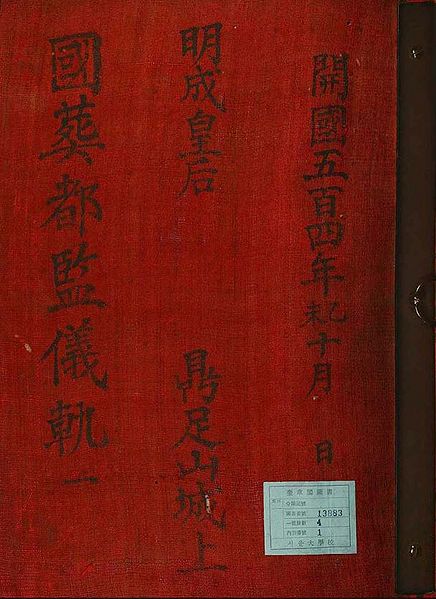 開國五百四年乙未十月 日
明成皇后 鼎足山城上
國葬都監儀軌 一
奎章閣圖書
圖書番號 13883
4
1
서울大學校